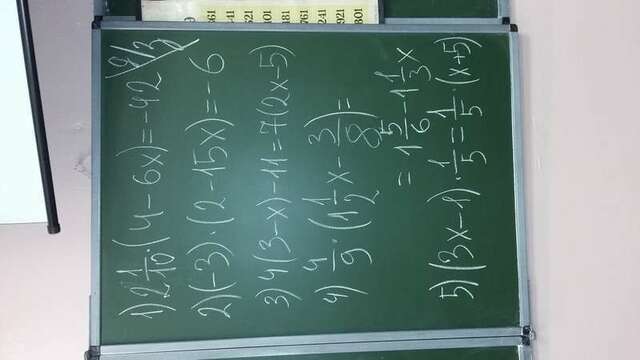 1) 2 1/10 · (4 - 6x) = -42 д/з
2) (-3) · (2 - 15x) = -6
3) 4(3 - x) - 11 = 7(2x - 5)
4) 4/9 · (1 1/2 x - 3/8) =
= 1 5/6 - 1 1/3 x
5) (3x - 1) · 1/5 = 1/5 · (x + 5)
9
361
441
521
101
481
761
241
921
301